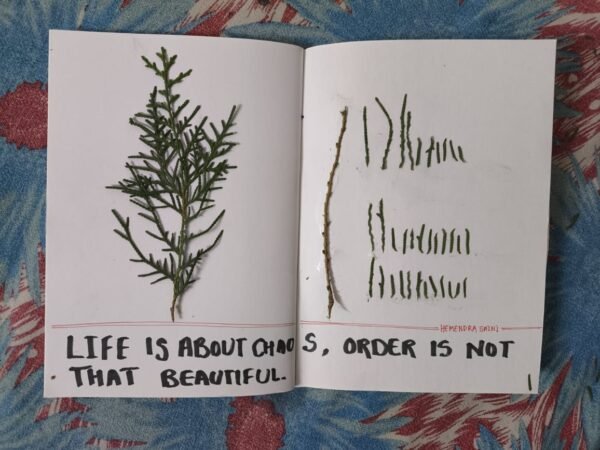 HEMENDRA SAINI
LIFE IS ABOUT CHAOS, ORDER IS NOT
THAT BEAUTIFUL.